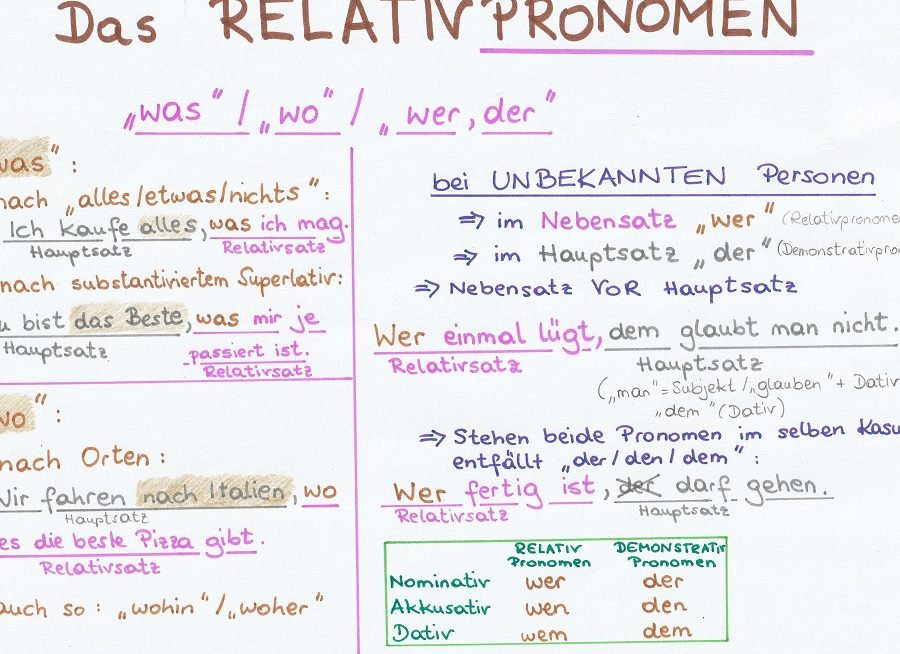 Das RELATIVPRONOMEN
„was“ / „wo“ / „wer, der“
was“ :
nach „alles/etwas/nichts“:
Ich kaufe alles, was ich mag.
Hauptsatz Relativsatz
nach substantiviertem Superlativ:
u bist das Beste, was mir je
Hauptsatz passiert ist.
Relativsatz
wo“ :
nach Orten :
Wir fahren nach Italien, wo
Hauptsatz
es die beste Pizza gibt.
Relativsatz
auch so : „wohin“/„woher“
bei UNBEKANNTEN Personen
⇒ im Nebensatz „wer“ (Relativpronomen
⇒ im Hauptsatz „der“ (Demonstrativpro
⇒ Nebensatz VOR Hauptsatz
Wer einmal lügt, dem glaubt man nicht.
Relativsatz Hauptsatz
(„man“=Subjekt/„glauben“ + Dativ
„dem“ (Dativ)
⇒ Stehen beide Pronomen im selben Kasu
entfällt „der/den/dem“ :
Wer fertig ist, der darf gehen.
Relativsatz Hauptsatz
RELATIV DEMONSTRATIV
Pronomen Pronomen
Nominativ wer der
Akkusativ wen den
Dativ wem dem